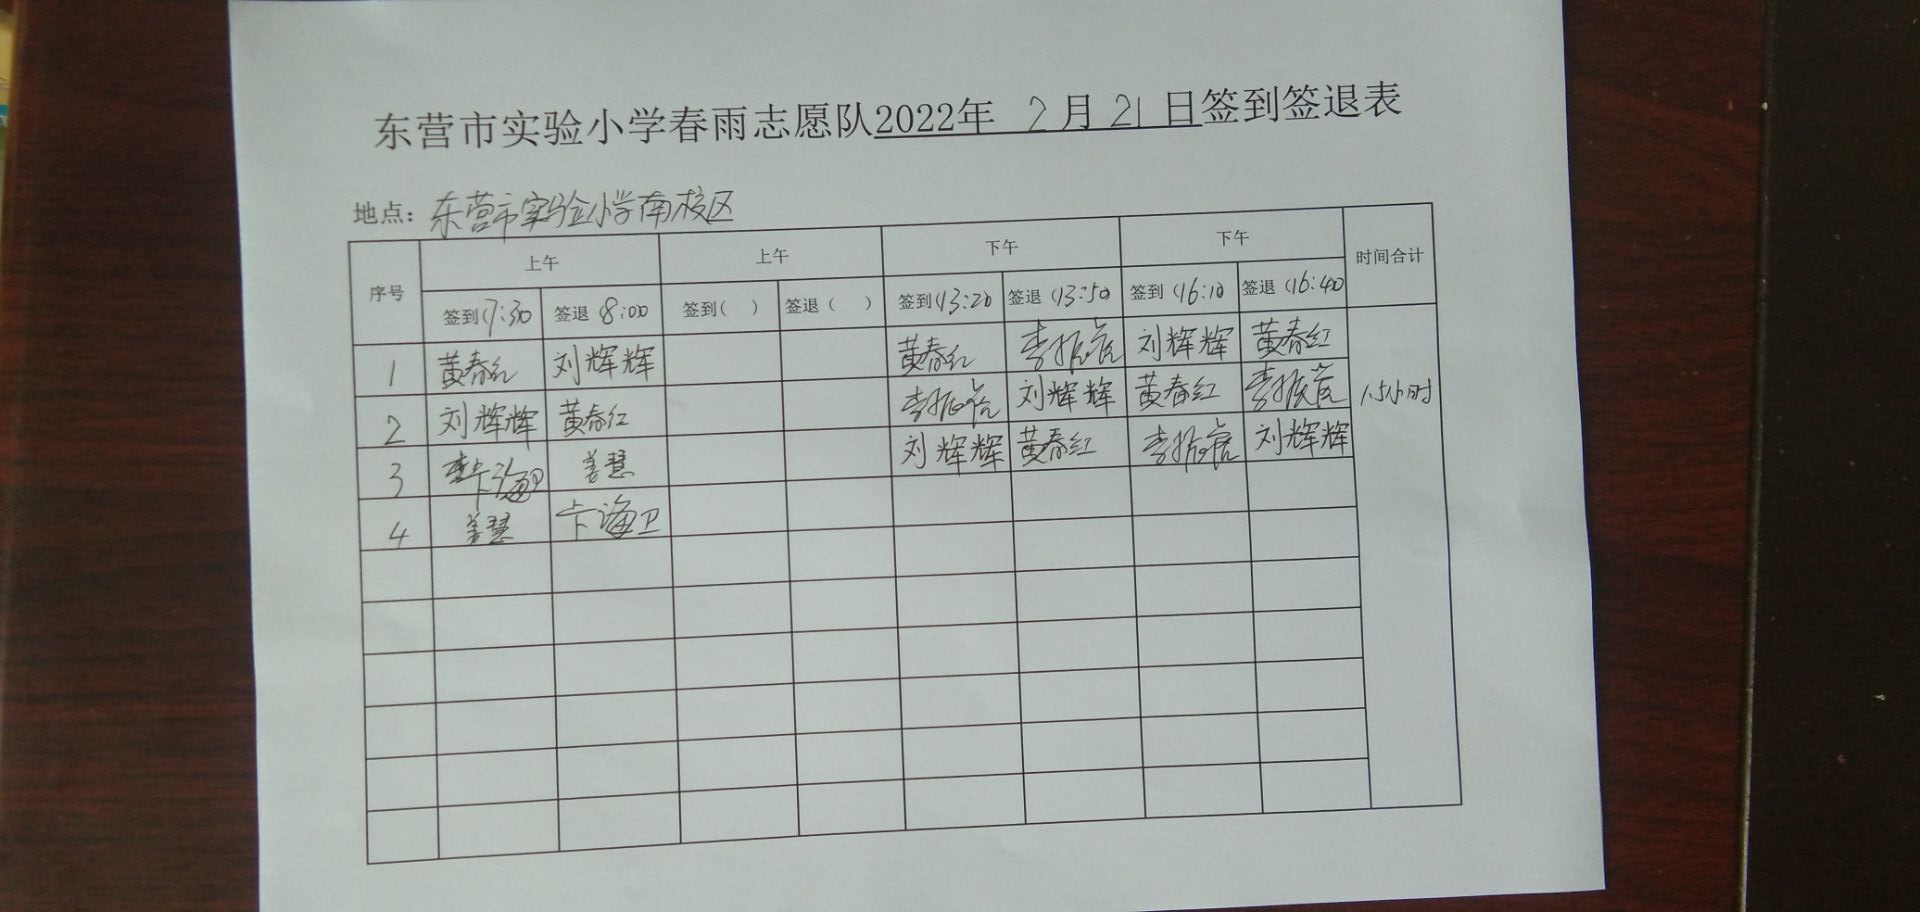 东营市实验小学春雨志愿队2022年 2月21日签到签退表
地点：东营市实验小学南校区
序号 上午 上午 下午 下午 时间合计
签到(7:30 签退 8:00 签到( ) 签退( ) 签到(13:20 签退(13:50 签到(16:10 签退(16:40
1 黄春红 刘辉辉 黄春红 刘辉辉 黄春红
2 刘辉辉 黄春红 刘辉辉 黄春红 1.5小时
3 姜慧 刘辉辉 黄春红 刘辉辉
4 姜慧 卞海卫